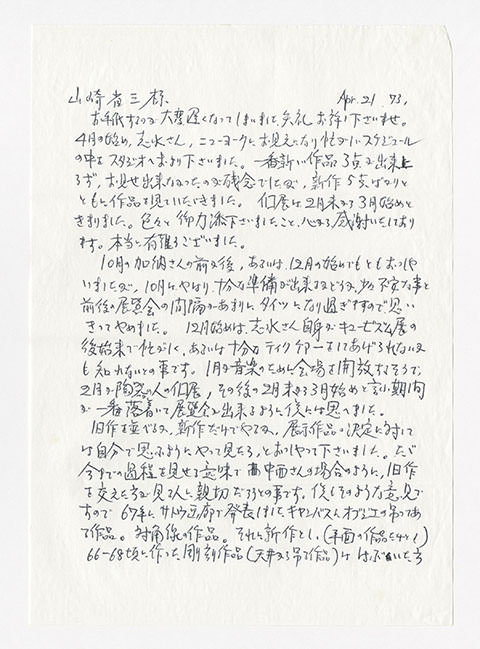 山崎省三様 Apr. 21 '73,
お手紙するのが大変遅くなってしまいました。失礼お許し下さいませ。
4月の始め、志水さん、ニューヨークにお見えになり忙がしいスケジュール
の中をスタジオへおより下さいました。一番新しい作品3点が出来上
らず、お見せ出来なかったのが残念でしたが、新作5点ばかりと
ともに作品を見ていただきました。個展は2月末から3月始めと
きまりました。色々と御力添下さいましたこと、心から感謝いたしており
ます。本当に有難うございました。
10月の加納さんの前か後、あるいは12月の始めでもともおっしゃ
いましたが、10月にはやはり十分な準備が出来るかどうか、少々不安な事と
前後の展覧会の間隔があまりにタイトになり過ぎますので思い
きってやめました。12月始めは、志水さん自身がキュービズム展の
後始末で忙がしく、あるいは十分なテイクケアーをしてあげられないか
も知れないとの事です。1月は音楽のために会場を開放するそうで、
2月が陶器の人の個展、その後の2月末から3月始めと言う期間
が一番落着いて展覧会が出来るように僕には思へました。
旧作を並べるか、新作だけでやるか、展示作品の決定に対して
は自分で思ふようにやって見たら、とおっしゃって下さいました。ただ
今までの過程を見せる意味で中西さんの場合のように、旧作
を交えた方が見る人に親切だろうとの事です。僕もそのような意見で
すので 67年にサトウ画廊で発表した、キャンバスにオブジェの吊ってあ
る作品。対角線の作品。それに新作とし、(平面の作品だけとし)
66-68頃に作った彫刻作品(天井から吊す作品)は はぶいた方